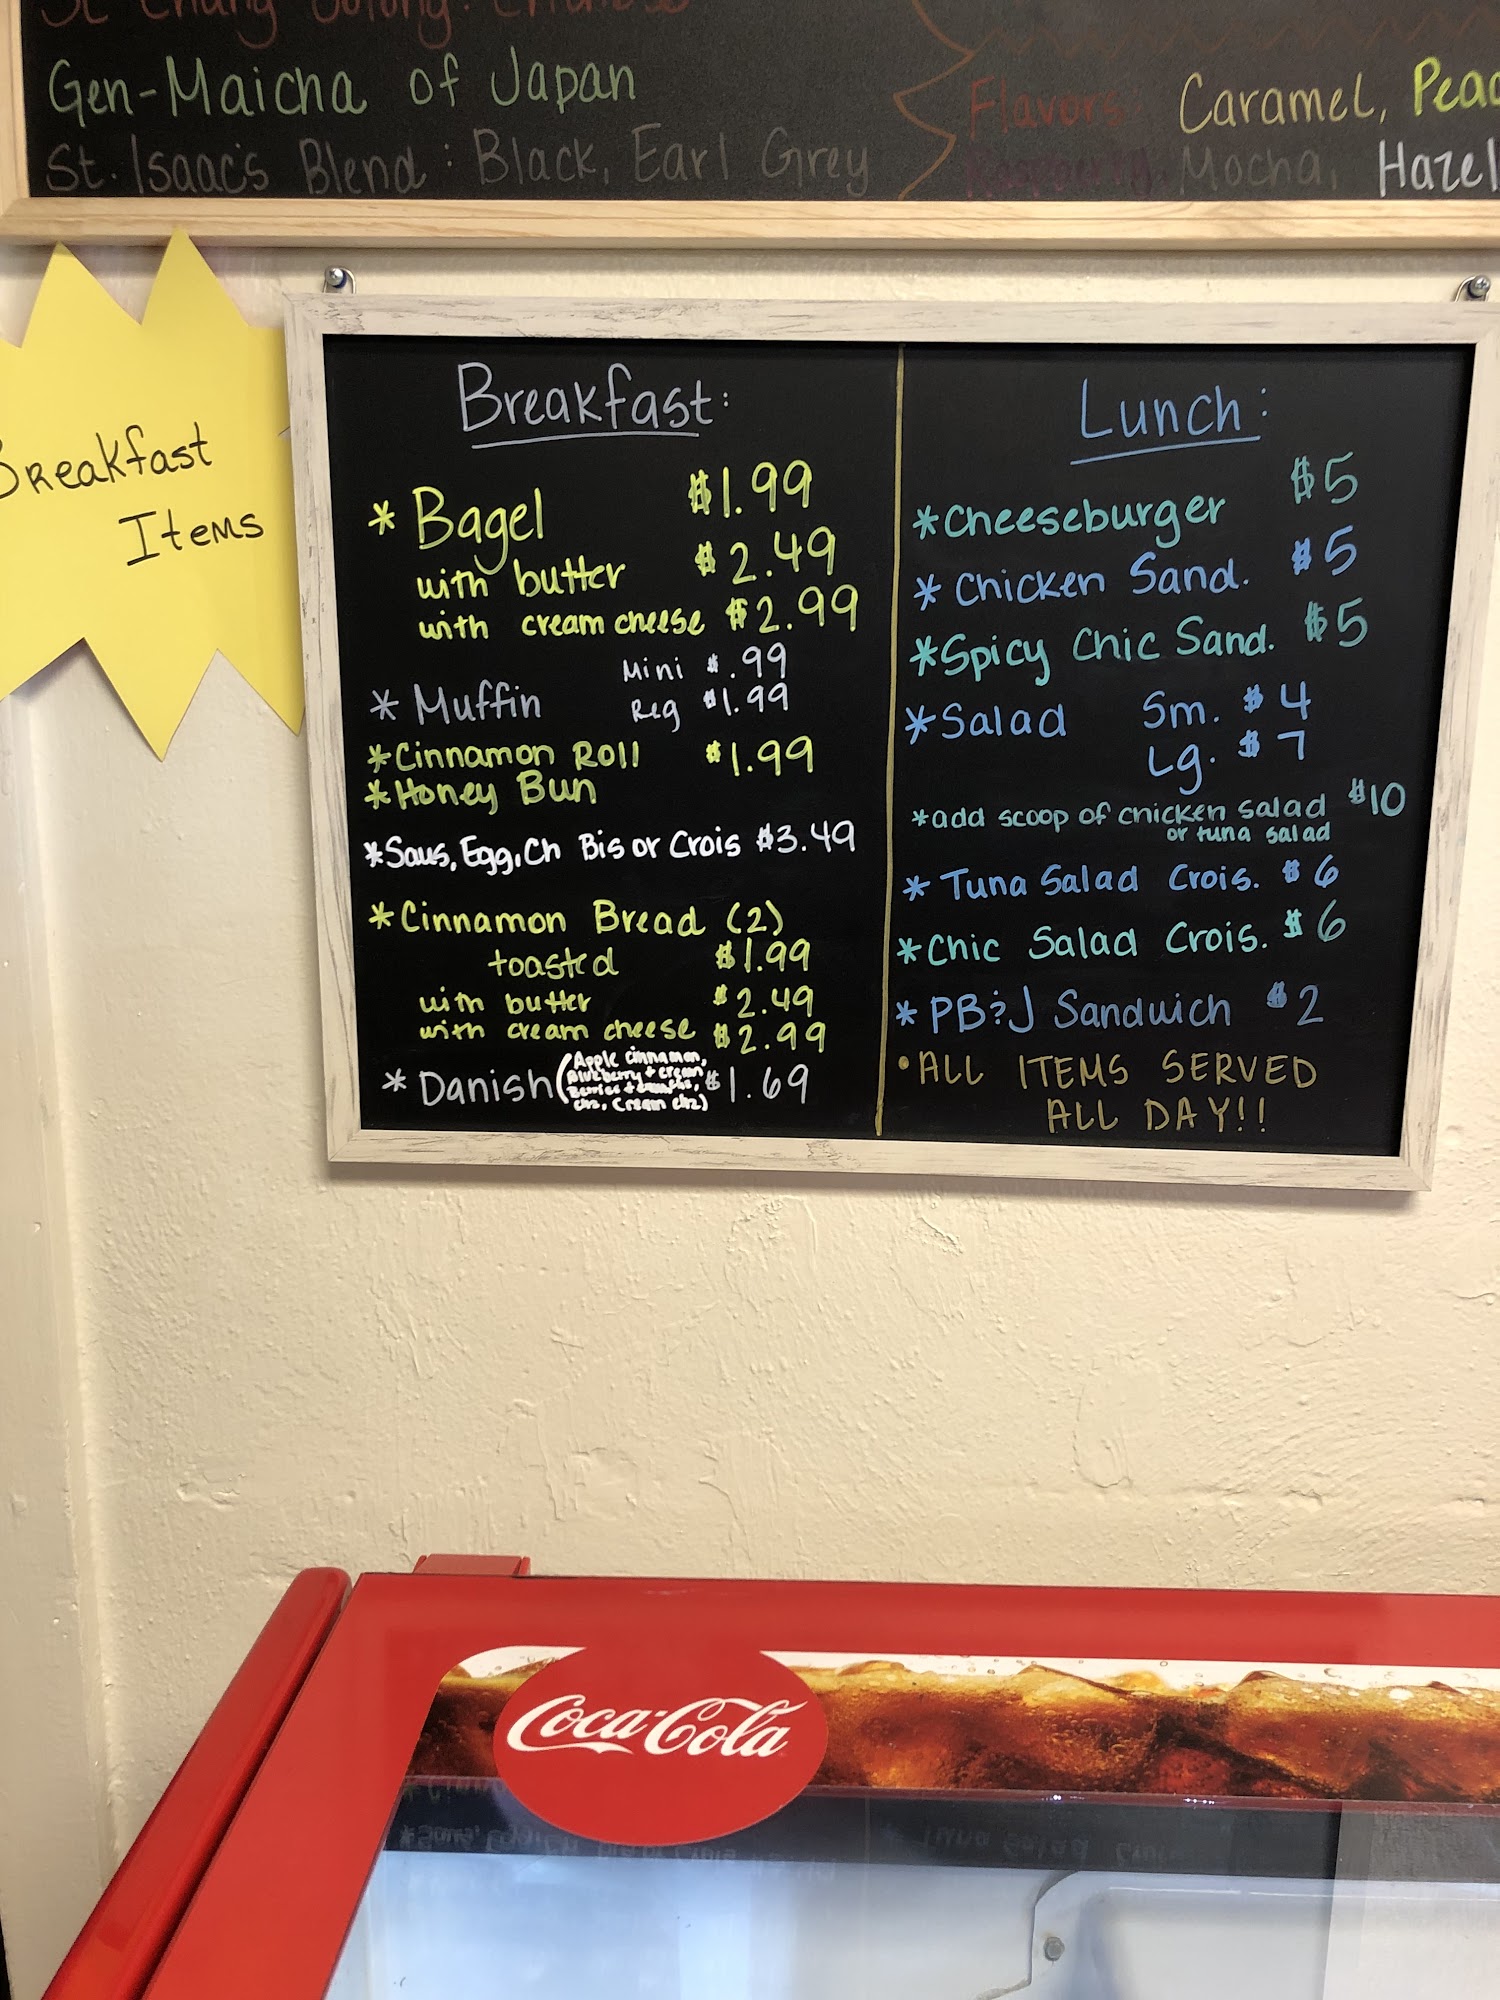 Gen-Maicha of Japan
St. Isaac's Blend: Black, Earl Grey
Flavors: Caramel,
Mocha,
Breakfast
Items
Breakfast:
* Bagel $1.99
with butter $2.49
with cream cheese $2.99
Mini $.99
* Muffin Reg $1.99
*Cinnamon Roll $1.99
*Honey Bun
*Saus, Egg, Ch Bis or Crois $3.49
*Cinnamon Bread (2)
toasted $1.99
with butter $2.49
with cream cheese $2.99
* Danish (Apple cinnamon,
Blueberry + cream
$1.69
Cream chz)
Lunch:
*Cheeseburger $5
* Chicken Sand. $5
*Spicy Chic Sand. $5
*Salad Sm. $4
Lg. $7
*add scoop of chicken salad $10
or tuna salad
* Tuna Salad Crois. $6
* Chic Salad Crois. $6
* PB&J Sandwich $2
• ALL ITEMS SERVED
ALL DAY!!
Coca-Cola